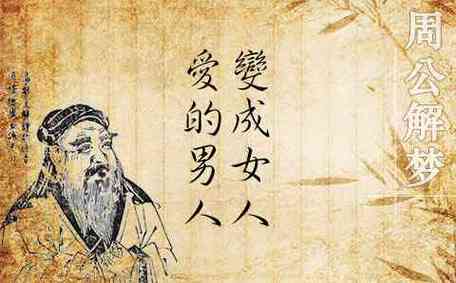 周公解梦
變成女人
愛的男人